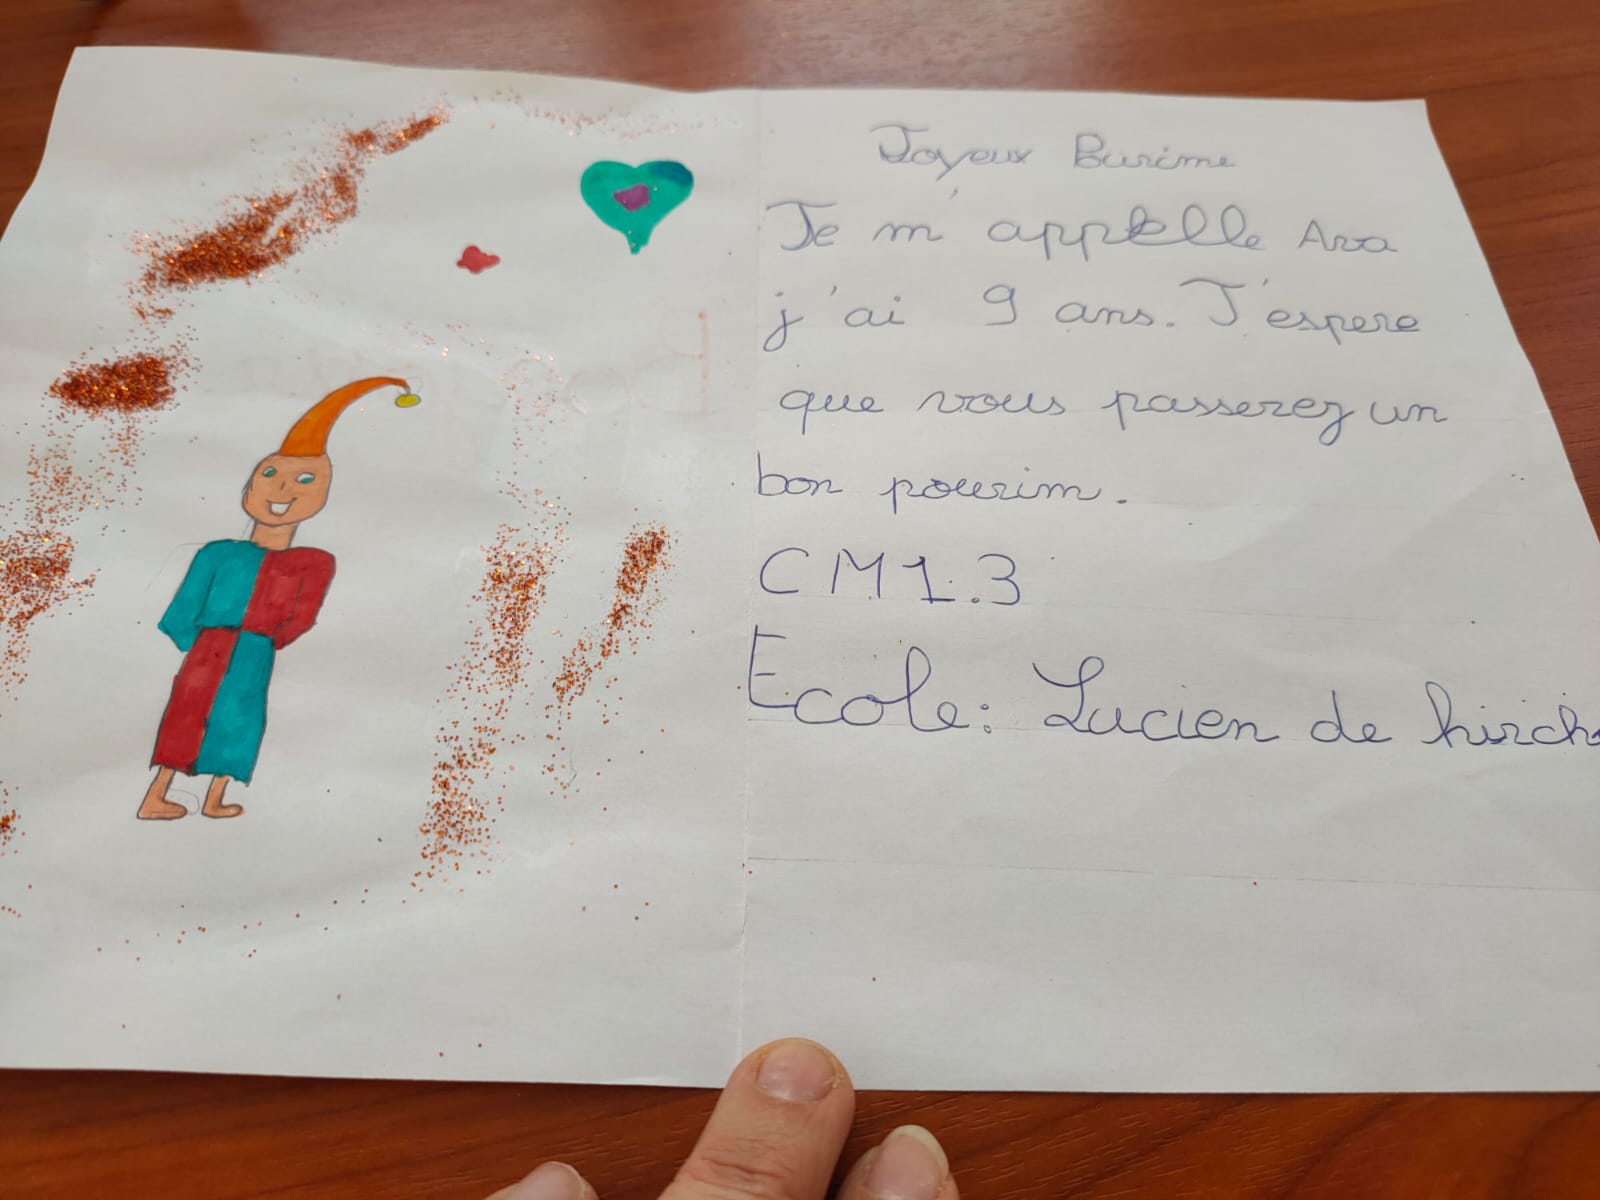 Joyeux Burime
Je m'appelle Ava
j'ai 9 ans. J'espere
que vous passerez un
bon pourim.
CM1.3
Ecole: Lucien de hirch